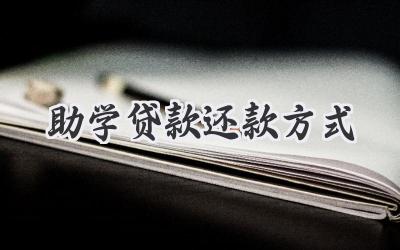 助学贷款还款方式